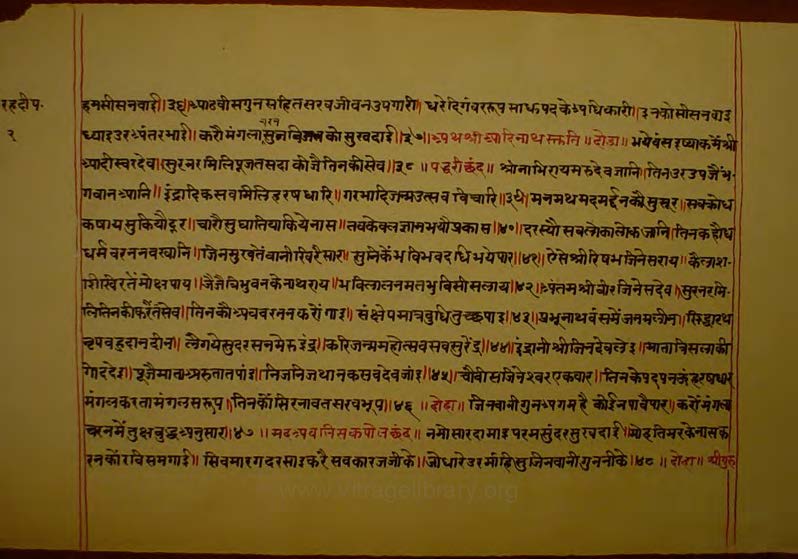 रहदीप.
२
हमसीसनवाई॥३६॥आठवीसगुनसहितसरवजीवनउपगारी॥धरेदिगंवररूपसाधपदकेअधिकारी॥इनकोसीसनवाइ
ध्याइउरअंतरभाई॥करौमंगला को सुखदाई॥३७॥अथश्रीआदिनाथस्तुति॥दोहा॥भयेवंसइष्याकमेंश्री
चरन
आदीस्वरदेव॥सुरनरमिलिपूजतसदाकीजैतिनकीसेव॥३८॥पद्धरीछंद॥श्रीनाभिरायमरुदेवजानि॥तिनउरउपजैंभ
गवानआनि॥इंद्रादिकसवमिलिहरषधारि॥गरभादिजन्मउत्सवविचारि॥३९॥मनमथमदमर्द्दनकौसुसूर॥सवक्रोध
कषायसुकियौदूर॥चारौसुघातियाकियेनास॥तवकेवलज्ञानभयौप्रकास॥४०॥दरस्यौसवलोकालोकजानि॥तिनकहौध
र्मवरननवखानि॥जिनमुखतेंवानीखिरीसार॥सुनिकेंभविभवदधिभयेपार॥४१॥ऐसेश्रीरिषभजिनेसराय॥कैलास
शिखिरतेंमोक्षपाय॥जैजैत्रिभुवनकेनाथराय॥भविलालनमतभुविसीसलाय॥४२॥अंतमश्रीवीरजिनेसदेव॥सुरनरमि
लितिनकीकरैंतसेव॥तिनकौअववरननकरोंगाइ॥संक्षेपमात्रबुधितुछपाइ॥४३॥प्रभूनाथवंसमेंजनमलीन॥सिद्धारथ
नृपवहुदानदीन॥लैगयेसुदरसनमेरुइंद्र॥करिजन्ममहोत्सवसवसुरेंद्र॥४४॥इंद्रानीश्रीजिनदेवलेइ॥मातात्रिसलाकी
गोददेइ॥पूजैमाता तातपांइ॥निजनिजथानकसवदेवजांइ॥४५॥चौवीसजिनेश्वरएकवार॥तिनकेपदपनकंहरषधार
मंगलकरतामंगलसरूप॥तिनकौंसिरनावतसरवभूप॥४६॥दोहा॥जिनवानीगुनअगमहैकोईनपावैपार॥करोंमंगला
चरनमेंतुक्षबुद्धअनुसार॥४७॥मदअवनिसकपोलछंद॥नमोसारदामाइपरमसुंदरसुखदाई॥मोहतिमरकेनासक
रनकोंरविसमगाई॥सिवमारगदरसाइकरैसवकारजजीके॥जोधारेउरमांहिसुजिनवानीगुननीके॥४८॥दोहा॥श्रीगुरु
www.vitragelibrary.org